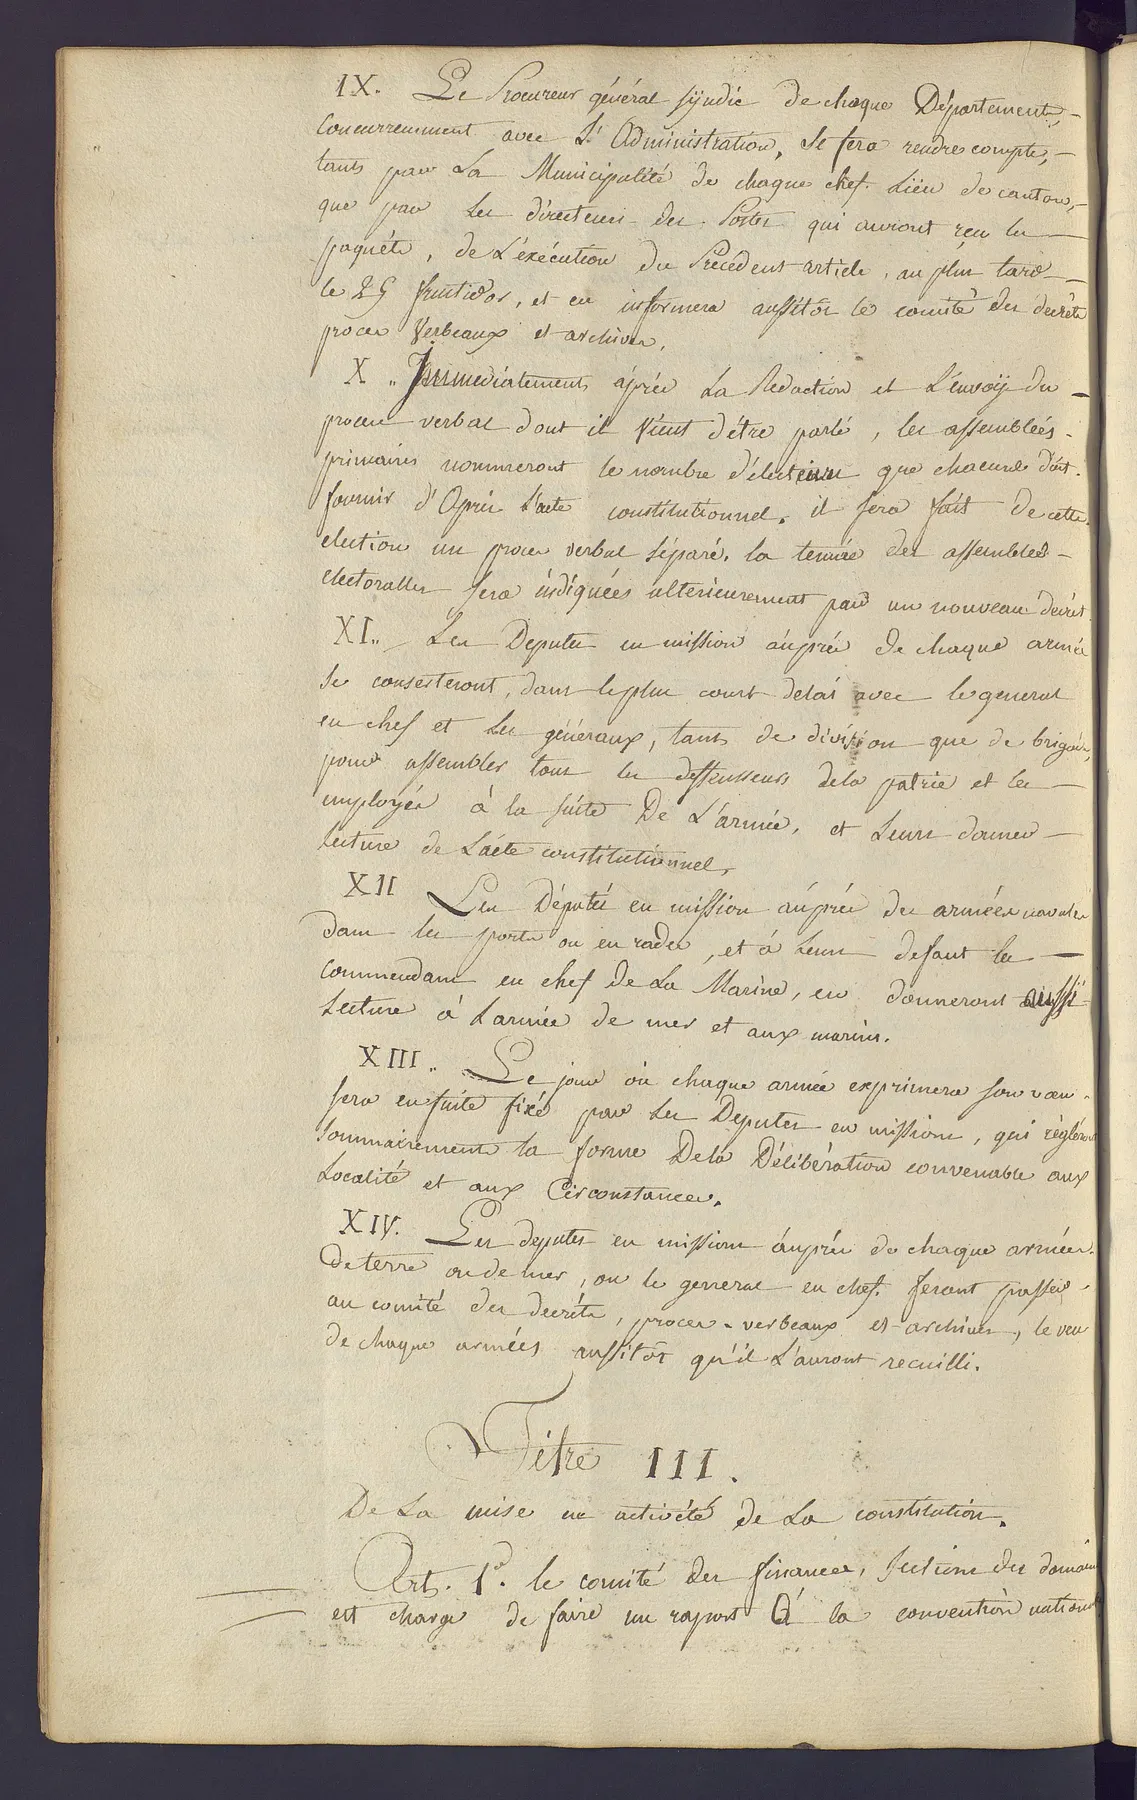 IX. Le Procureur général syndic de chaque Département,
concurremment avec L'Administration, se fera rendre compte,
tant par La Municipalité de chaque chef-Lieu de canton,
que par les directeurs des Postes qui auront reçu les
paquéts, de L'éxécution du Précédent article, au plus tard
le 25 fructidor, et en informera aussitôt le comité des decréts
proces Verbeaux et archives.
X.. Immediatement après La Redaction et L'envoÿ du
proces verbal dont il vient d'être parlé, les assemblées
primaires nommeront le nombre d'électeurs que chacune doit
fournir d'Après L'acte constitutionnel. il sera fait de cette
election un proces verbal séparé. la tenuée des assemblées
électoralles sera indiquées ulterieurement par un nouveau decrét
XI.. Les Deputes en mission auprés de chaque armée
se conserteront, dans le plus court delai avec le general
en chef et les généraux, tant de division que de brigade,
pour assembler tous les deffenseurs dela patrie et les
employés à la suite De L'armée, et Leurs donner
lecture de L'acte constitutionnel.
XII Les Députés en mission auprés des armées navales
dans les ports ou en rades, et à Leur defaut les
commendans en chef de La Marine, en donneront aussi
Lecture à L'armée de mer et aux marins.
XIII.. Le jour où chaque armée exprimera son vœu
sera ensuite fixé par Les Deputes en mission, qui régléront
sommairement la forme Dela Délibération convenable aux
Localité et aux Circonstances.
XIV. Les deputes en mission auprés de chaque armées
de terre ou de mer, ou le general en chef. feront passer
au comité des decréts, proces-verbeaux et archives, le veu
de chaque armées aussitôt qu'il L'auront recuilli.
Titre III.
De La mise en activité de La constitution.
Art. 1er. le comité des finances, section des domaines
est chargé de faire un raport à la convention nationale